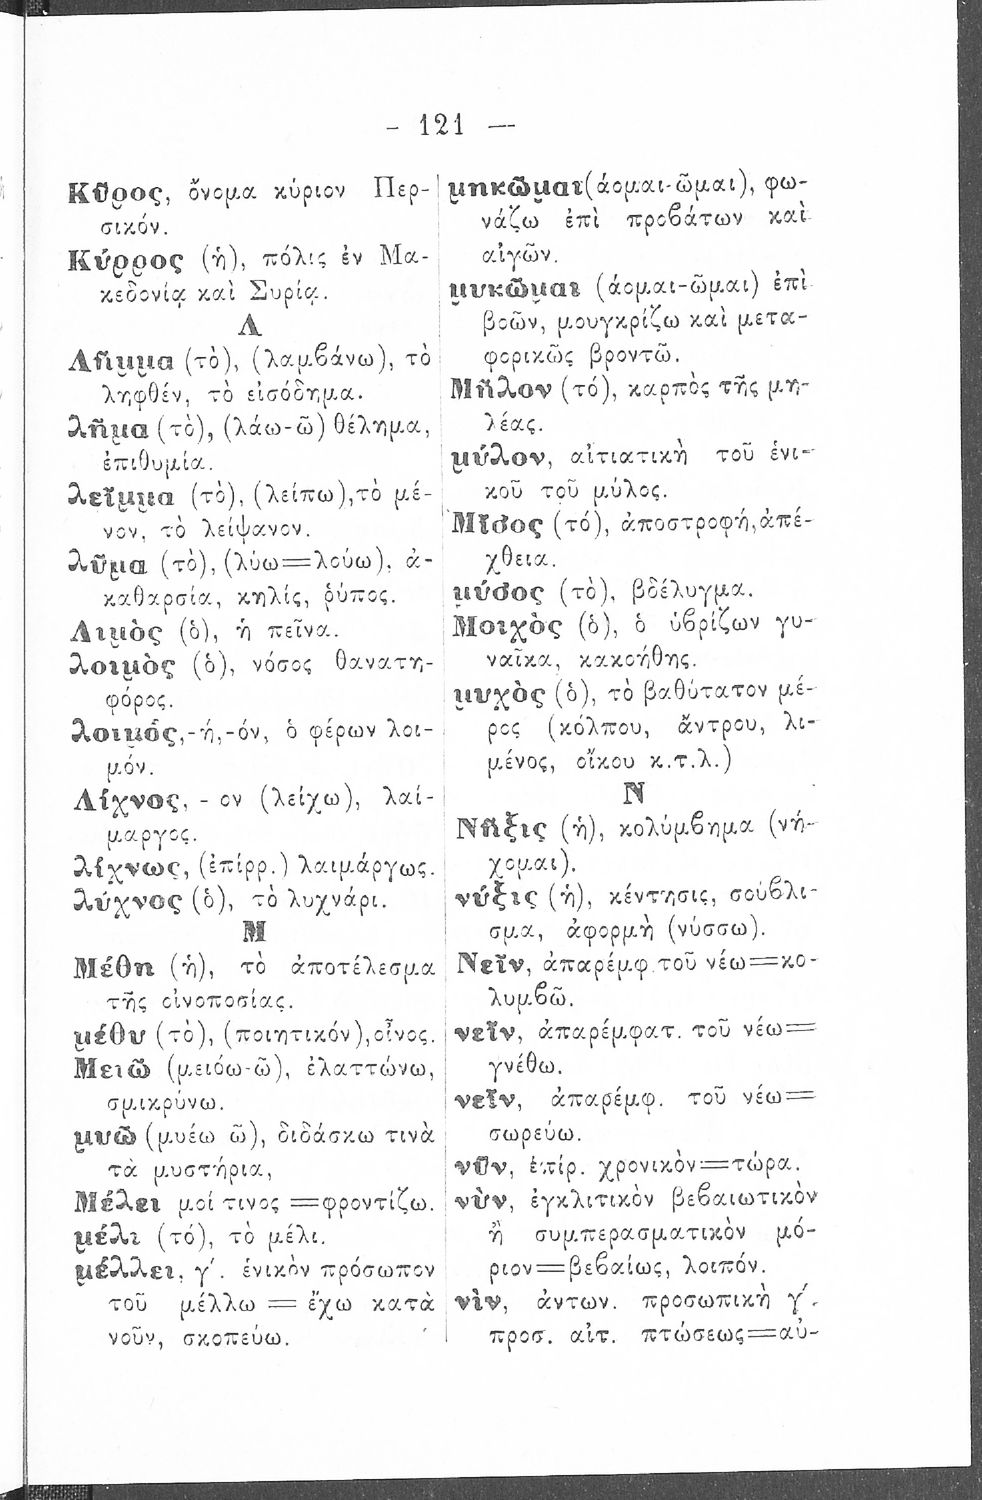 - 121 —
Κῦρος, ὄνομα κύριον Περ-
σικόν.
Κύρρος (ἡ), πόλις ἐν Μα-
κεδονίᾳ καὶ Συρίᾳ.
Λ
Λῆμμα (τὸ), (λαμβάνω), τὸ
ληφθέν, τὸ εἰσόδημα.
λῆμα (τὸ), (λάω-ῶ) θέλημα,
ἐπιθυμία.
λεῖμμα (τὸ), (λείπω),τὸ μέ-
νον, τὸ λείψανον.
λῦμα (τὸ), (λύω=λούω), ἀ-
καθαρσία, κηλίς, ῥύπος.
Λιμὸς (ὁ), ἡ πεῖνα.
λοιμὸς (ὁ), νόσος θανατη-
φόρος.
λοιμός,-ή,-όν, ὁ φέρων λοι-
μόν.
Λίχνος, - ον (λείχω), λαί-
μαργος.
λίχνως, (ἐπίρρ.) λαιμάργως.
λύχνος (ὁ), τὸ λυχνάρι.
Μ
Μέθη (ἡ), τὸ ἀποτέλεσμα
τῆς οἰνοποσίας.
μέθυ (τὸ), (ποιητικόν),οἶνος.
Μειῶ (μειόω-ῶ), ἐλαττώνω,
σμικρύνω.
μυῶ (μυέω ῶ), διδάσκω τινὰ
τὰ μυστήρια,
Μέλει μοί τινος =φροντίζω.
μέλι (τό), τὸ μέλι.
μέλλει, γ΄. ἑνικὸν πρόσωπον
τοῦ μέλλω = ἔχω κατὰ
νοῦν, σκοπεύω.
μηκῶμαι(άομαι-ῶμαι), φω-
νάζω ἐπὶ προβάτων καὶ
αἰγῶν.
μυκῶμαι (άομαι-ῶμαι) ἐπὶ
βοῶν, μουγκρίζω καὶ μετα-
φορικῶς βροντῶ.
Μῆλον (τό), καρπὸς τῆς μη-
λέας.
μύλον, αἰτιατικὴ τοῦ ἑνι-
κοῦ τοῦ μύλος.
Μῖσος (τό), ἀποστροφή,ἀπέ-
χθεια.
μύσος (τὸ), βδέλυγμα.
Μοιχὸς (ὁ), ὁ ὑβρίζων γυ-
ναῖκα, κακοήθης.
μυχὸς (ὁ), τὸ βαθύτατον μέ-
ρος (κόλπου, ἄντρου, λι-
μένος, οἴκου κ.τ.λ.)
Ν
Νῆξις (ἡ), κολύμβημα (νή-
χομαι).
νύξις (ἡ), κέντησις, σούβλι-
σμα, ἀφορμὴ (νύσσω).
Νεῖν, ἀπαρέμφ.τοῦ νέω=κο-
λυμβῶ.
νεῖν, ἀπαρέμφατ. τοῦ νέω=
γνέθω.
νεῖν, ἀπαρέμφ. τοῦ νέω=
σωρεύω.
νῦν, ἐπίρ. χρονικὸν=τώρα.
νὺν, ἐγκλιτικὸν βεβαιωτικὸν
ἢ συμπερασματικὸν μό-
ριον=βεβαίως, λοιπόν.
νὶν, ἀντων. προσωπικὴ γ΄.
προσ. αἰτ. πτώσεως=αὐ-